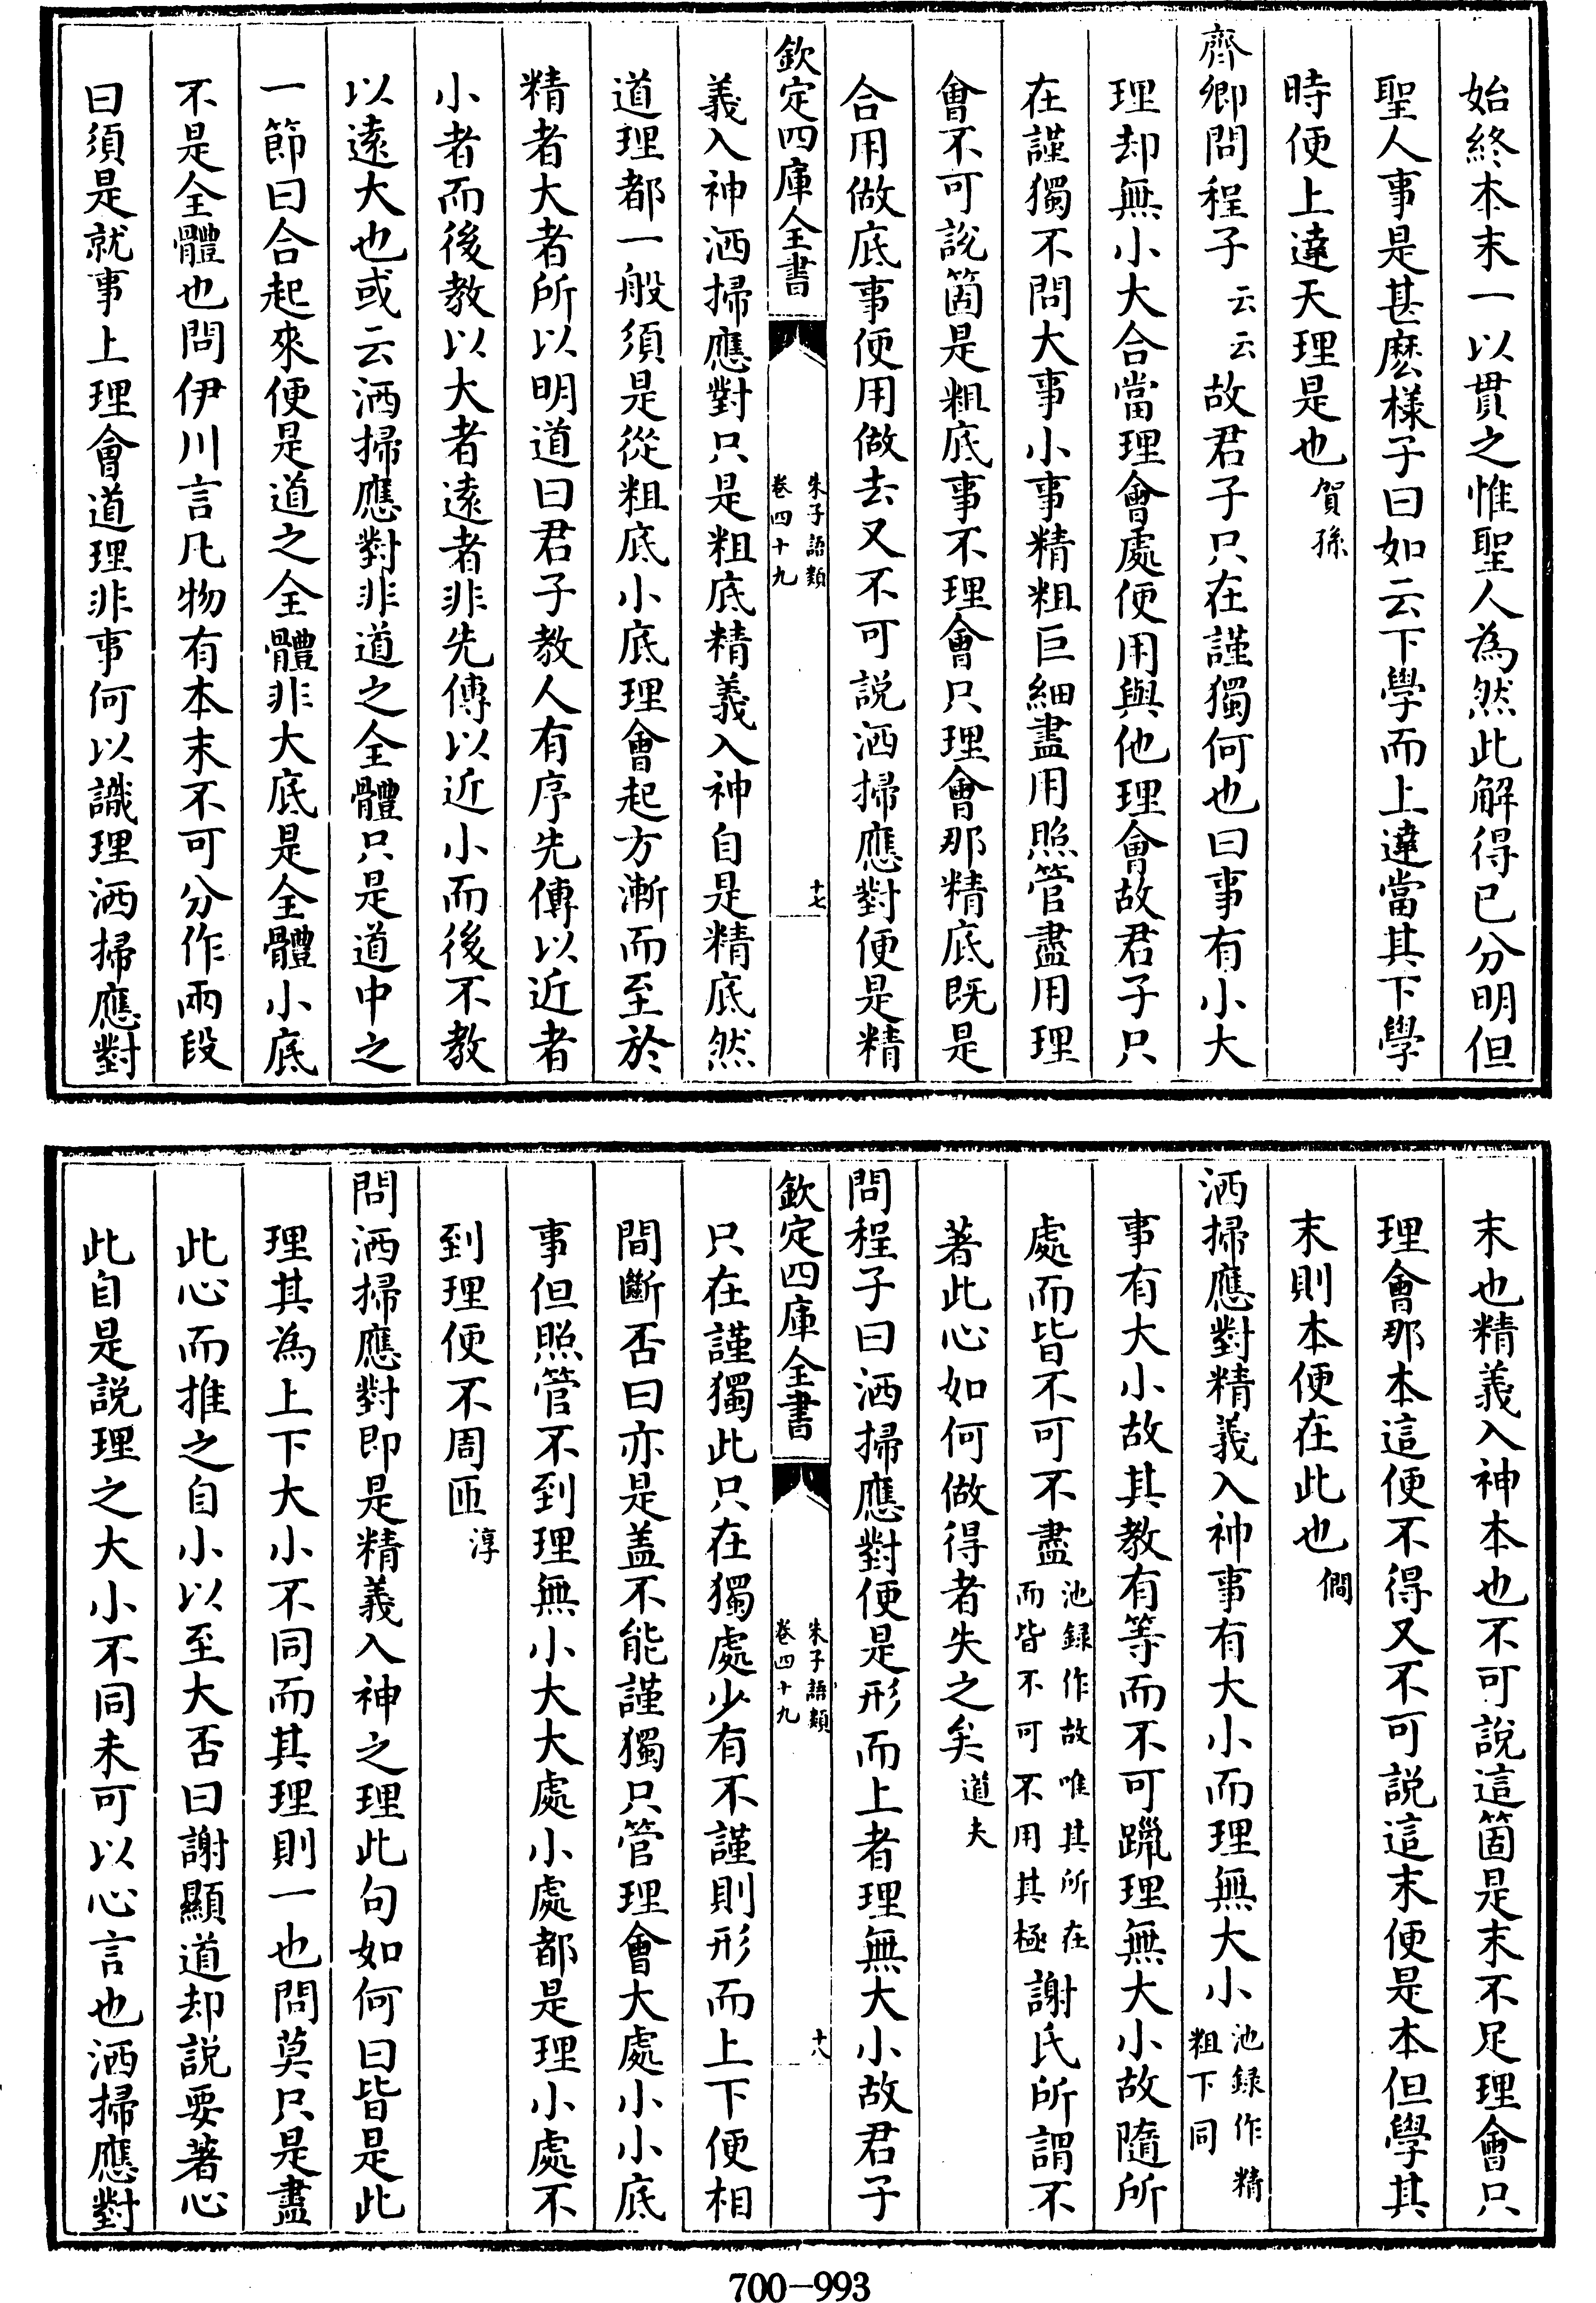 始終本末一以貫之惟聖人為然此解得已分明但
聖人事是甚麽樣子曰如云下學而上達當其下學
時便上達天理是也賀孫
齊卿問程子云云故君子只在謹獨何也曰事有小大
理却無小大合當理會處便用與他理會故君子只
在謹獨不問大事小事精粗巨細盡用照管盡用理
會不可說箇是粗底事不理會只理會那精底既是
合用做底事便用做去又不可說洒掃應對便是精
欽定四庫全書
朱子語類
卷四十九
十七
義入神洒掃應對只是粗底精義入神自是精底然
道理都一般須是從粗底小底理會起方漸而至於
精者大者所以明道曰君子教人有序先傳以近者
小者而後教以大者遠者非先傳以近小而後不教
以遠大也或云洒掃應對非道之全體只是道中之
一節曰合起來便是道之全體非大底是全體小底
不是全體也問伊川言凡物有本末不可分作兩段
曰須是就事上理會道理非事何以識理洒掃應對
末也精義入神本也不可說這箇是末不足理會只
理會那本這便不得又不可說這末便是本但學其
末則本便在此也僩
洒掃應對精義入神事有大小而理無大小池録作精
粗下同
事有大小故其教有等而不可躐理無大小故隨所
處而皆不可不盡池録作故唯其所在
而皆不可不用其極謝氏所謂不
著此心如何做得者失之矣道夫
問程子曰洒掃應對便是形而上者理無大小故君子
欽定四庫全書
朱子語類
卷四十九
十八
只在謹獨此只在獨處少有不謹則形而上下便相
間斷否曰亦是盖不能謹獨只管理會大處小小底
事但照管不到理無小大大處小處都是理小處不
到理便不周匝淳
問洒掃應對即是精義入神之理此句如何曰皆是此
理其為上下大小不同而其理則一也問莫只是盡
此心而推之自小以至大否曰謝顯道却説要著心
此自是説理之大小不同未可以心言也洒掃應對
700-993